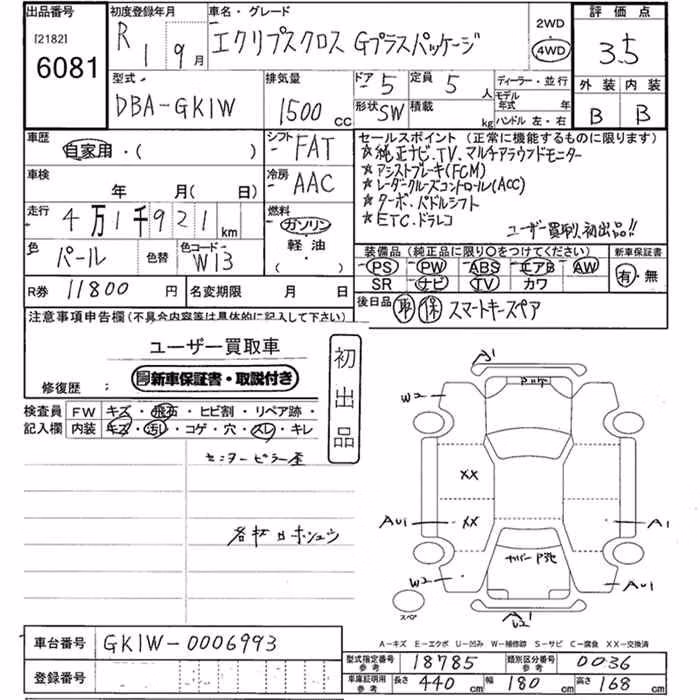 出品番号 初度登録年月 車名・グレード 2WD 評価点
[2182]
6081 R1 9月 エクリプスクロス Gプラスパッケージ 4WD 3.5
型式 排気量 ドア 5 定員 5人 ディーラー・並行 外装 内装
DBA-GK1W 1500cc 形状 SW 積載 kg モデル年式 年 B B
ハンドル 左・右
車歴 自家用・( ) シフト FAT セールスポイント(正常に機能するものに限ります)
★純正ナビ.TV.マルチアラウンドモニター
車検 年 月(日) 冷房 AAC ★アシストブレーキ(FCM)
★レーダークルーズコントロール(ACC)
走行 4万1千921km 燃料 ガソリン・軽油 ( ) ★ターボ.パドルシフト
★ETC.ドラレコ ユーザー買取.初出品!!
色 パール 色替 色コード W13 装備品(純正品に限り○をつけてください) 新車保証書
PS PW ABS エアB AW 有・無
SR ナビ TV カワ
R券 11800円 名変期限 月 日 後日品 取 保 スマートキースペア
注意事項申告欄(不具合内容等は具体的に記入して下さい)
ユーザー買取車 初出品
新車保証書・取説付き
修復歴:
検査員 FW キズ・飛石・ヒビ割・リペア跡・
記入欄 内装 キズ・汚レ・コゲ・穴・スレ・キレ
A1
W2
センターピラー
XX
AU1 XX A1
W2 AU1
スペア
A-キズ E-エクボ U-凹み W-補修跡 S-サビ C-腐食 XX-交換済
車台番号 GK1W-0006993
型式指定番号 参考 18785 類別区分番号 参考 0036
登録番号 車庫証明用 参考 長さ 440cm 幅 180cm 高さ 168cm